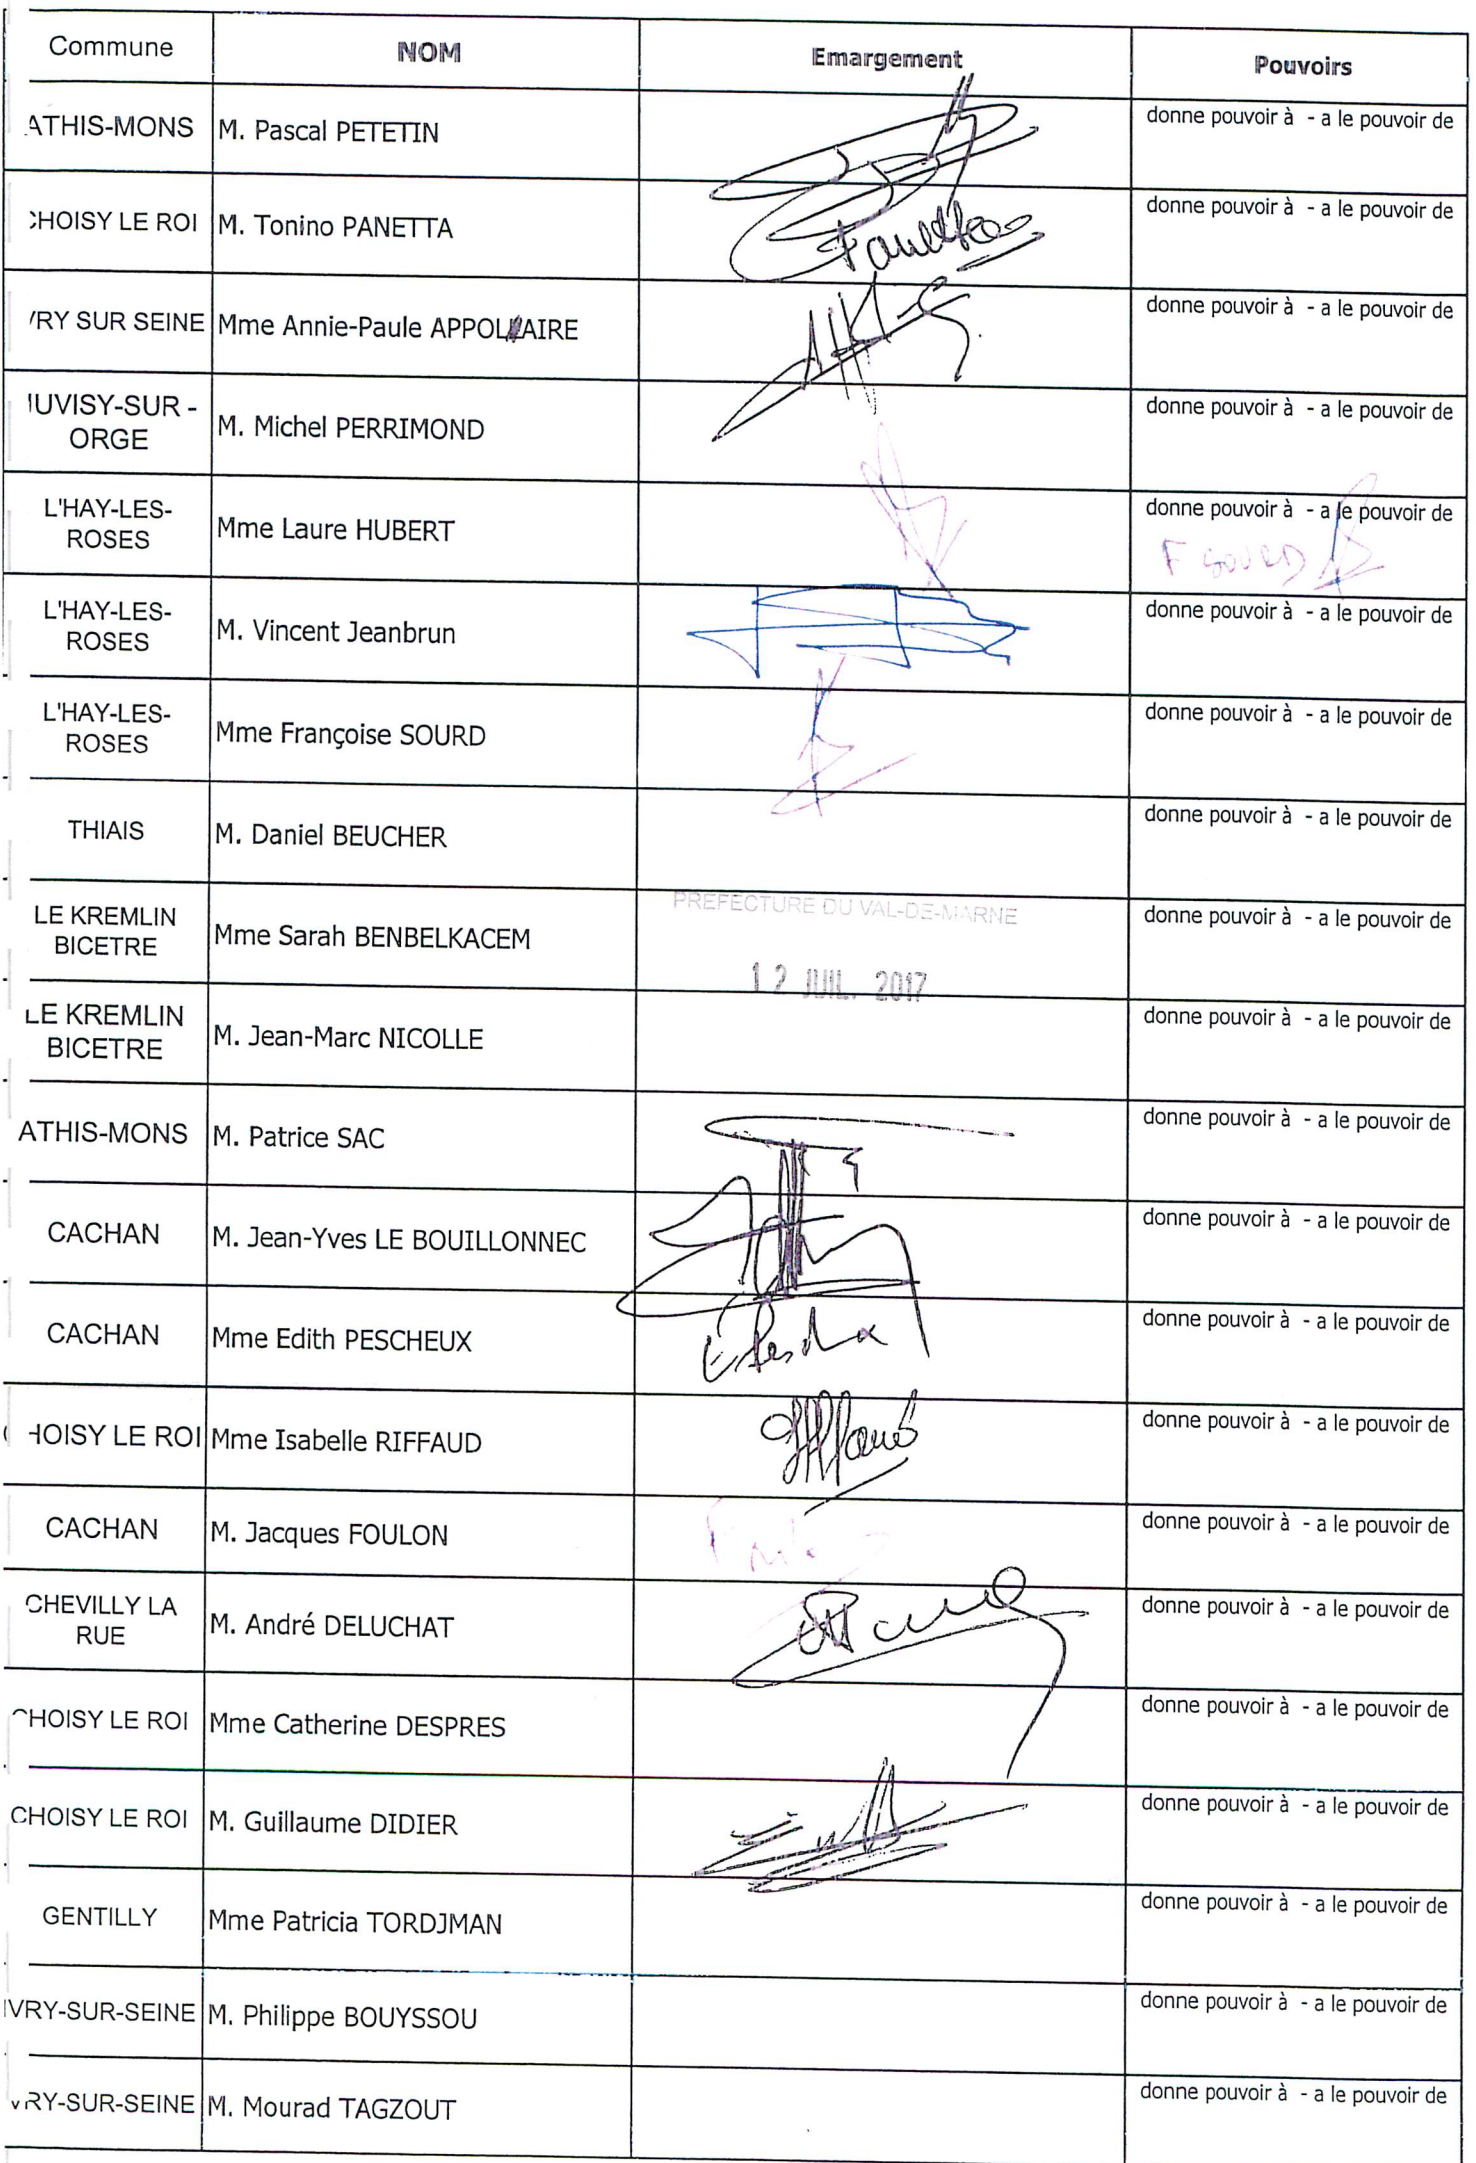 Commune NOM Emargement Pouvoirs
ATHIS-MONS M. Pascal PETETIN donne pouvoir à - a le pouvoir de
CHOISY LE ROI M. Tonino PANETTA donne pouvoir à - a le pouvoir de
Panetta
VRY SUR SEINE Mme Annie-Paule APPOLLAIRE donne pouvoir à - a le pouvoir de
UVISY-SUR -
ORGE
M. Michel PERRIMOND donne pouvoir à - a le pouvoir de
L'HAY-LES-
ROSES
Mme Laure HUBERT donne pouvoir à - a le pouvoir de
F SOURD
L'HAY-LES-
ROSES
M. Vincent Jeanbrun donne pouvoir à - a le pouvoir de
L'HAY-LES-
ROSES
Mme Françoise SOURD donne pouvoir à - a le pouvoir de
THIAIS M. Daniel BEUCHER donne pouvoir à - a le pouvoir de
LE KREMLIN
BICETRE
Mme Sarah BENBELKACEM donne pouvoir à - a le pouvoir de
PREFECTURE DU VAL-DE-MARNE
12 JUIL. 2017
LE KREMLIN
BICETRE
M. Jean-Marc NICOLLE donne pouvoir à - a le pouvoir de
ATHIS-MONS M. Patrice SAC donne pouvoir à - a le pouvoir de
CACHAN M. Jean-Yves LE BOUILLONNEC donne pouvoir à - a le pouvoir de
CACHAN Mme Edith PESCHEUX donne pouvoir à - a le pouvoir de
HOISY LE ROI Mme Isabelle RIFFAUD donne pouvoir à - a le pouvoir de
CACHAN M. Jacques FOULON donne pouvoir à - a le pouvoir de
CHEVILLY LA
RUE
M. André DELUCHAT donne pouvoir à - a le pouvoir de
CHOISY LE ROI Mme Catherine DESPRES donne pouvoir à - a le pouvoir de
CHOISY LE ROI M. Guillaume DIDIER donne pouvoir à - a le pouvoir de
GENTILLY Mme Patricia TORDJMAN donne pouvoir à - a le pouvoir de
IVRY-SUR-SEINE M. Philippe BOUYSSOU donne pouvoir à - a le pouvoir de
VRY-SUR-SEINE M. Mourad TAGZOUT donne pouvoir à - a le pouvoir de